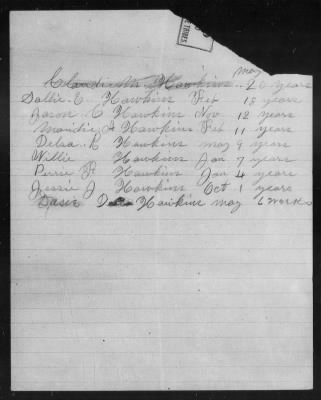 Claudie M Hawkins may 20 years
Dollie E Hawkins Feb 18 years
Aaron C Hawkins Nov 12 years
Maudie A Hawkins Feb 11 years
Delza R Hawkins may 9 years
Willie Hawkins Jan 7 years
Perrie P Hawkins Jan 4 years
Jessie J Hawkins Oct 1 years
Dasie Hawkins may 6 works